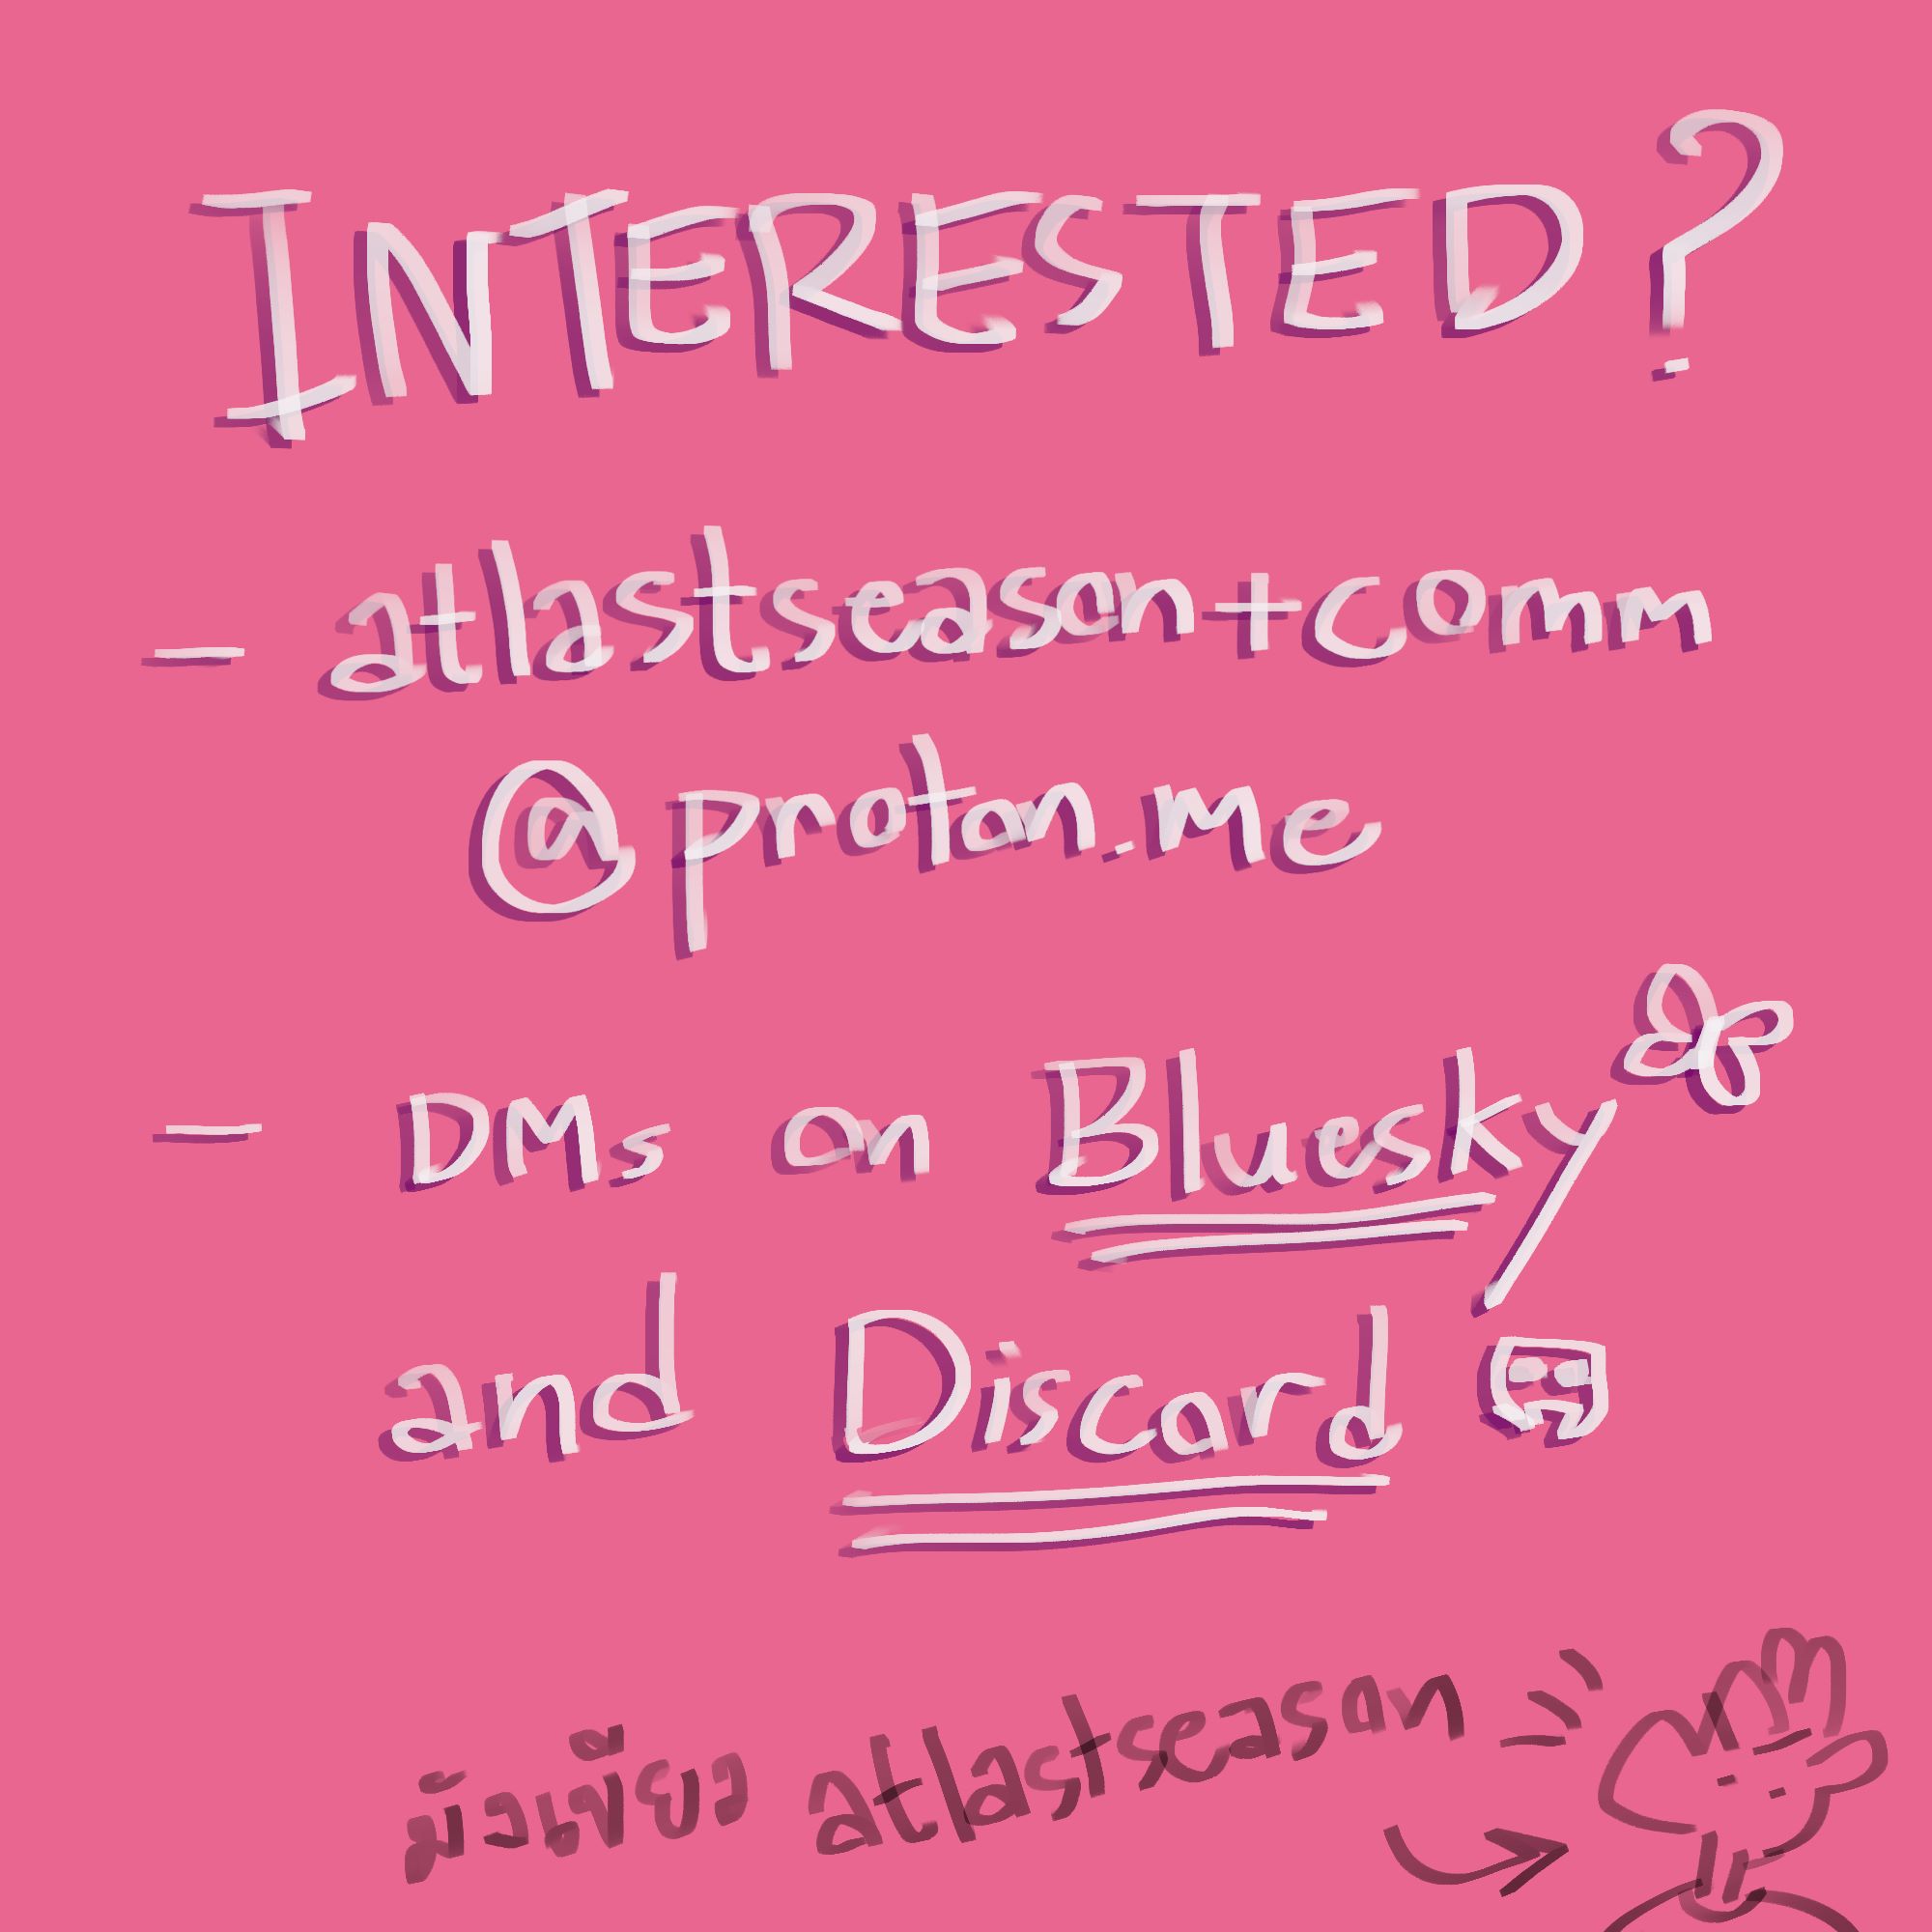 INTERESTED?
- atlastseason+comm
@proton.me
- DMs on Bluesky
and Discord
atlastseason